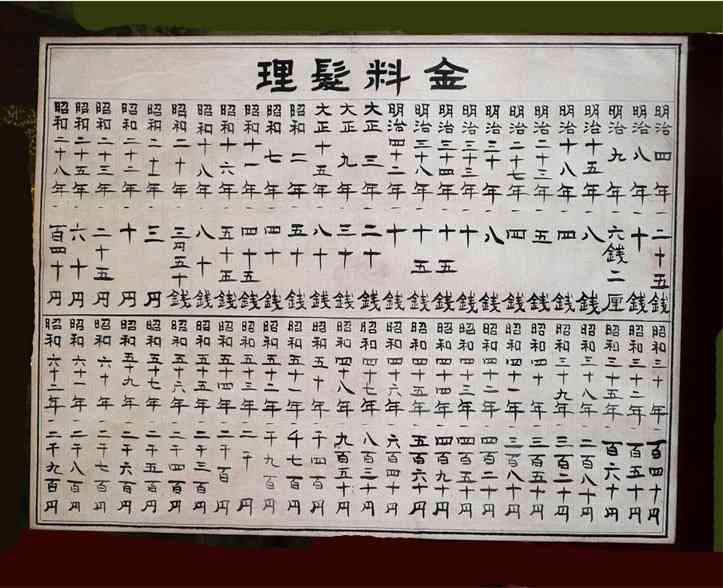 理髮料金
明治四年 二十五銭
明治八年 十銭
明治九年 六銭二厘
明治十五年 八銭
明治十八年 四銭
明治二十三年 五銭
明治二十七年 四銭
明治三十年 八銭
明治三十三年 十銭
明治三十四年 十五銭
明治三十八年 十五銭
明治四十二年 十銭
大正三年 二十銭
大正九年 三十銭
大正十五年 八十銭
昭和二年 五十銭
昭和七年 四十銭
昭和十一年 四十五銭
昭和十六年 五十五銭
昭和十八年 八十銭
昭和二十年 三円五十銭
昭和二十一年 三円
昭和二十二年 十円
昭和二十三年 二十五円
昭和二十五年 六十円
昭和二十八年 百四十円
昭和三十年 百四十円
昭和三十二年 百五十円
昭和三十五年 百六十円
昭和三十八年 二百八十円
昭和三十九年 三百二十円
昭和四十年 三百五十円
昭和四十一年 三百八十円
昭和四十二年 四百二十円
昭和四十三年 四百五十円
昭和四十四年 四百九十円
昭和四十五年 五百六十円
昭和四十六年 六百四十円
昭和四十七年 八百三十円
昭和四十八年 九百五十円
昭和五十年 千四百円
昭和五十一年 千七百円
昭和五十二年 千九百円
昭和五十三年 二千円
昭和五十四年 二千百円
昭和五十五年 二千三百円
昭和五十六年 二千四百円
昭和五十七年 二千五百円
昭和五十九年 二千六百円
昭和六十年 二千七百円
昭和六十一年 二千八百円
昭和六十二年 二千九百円